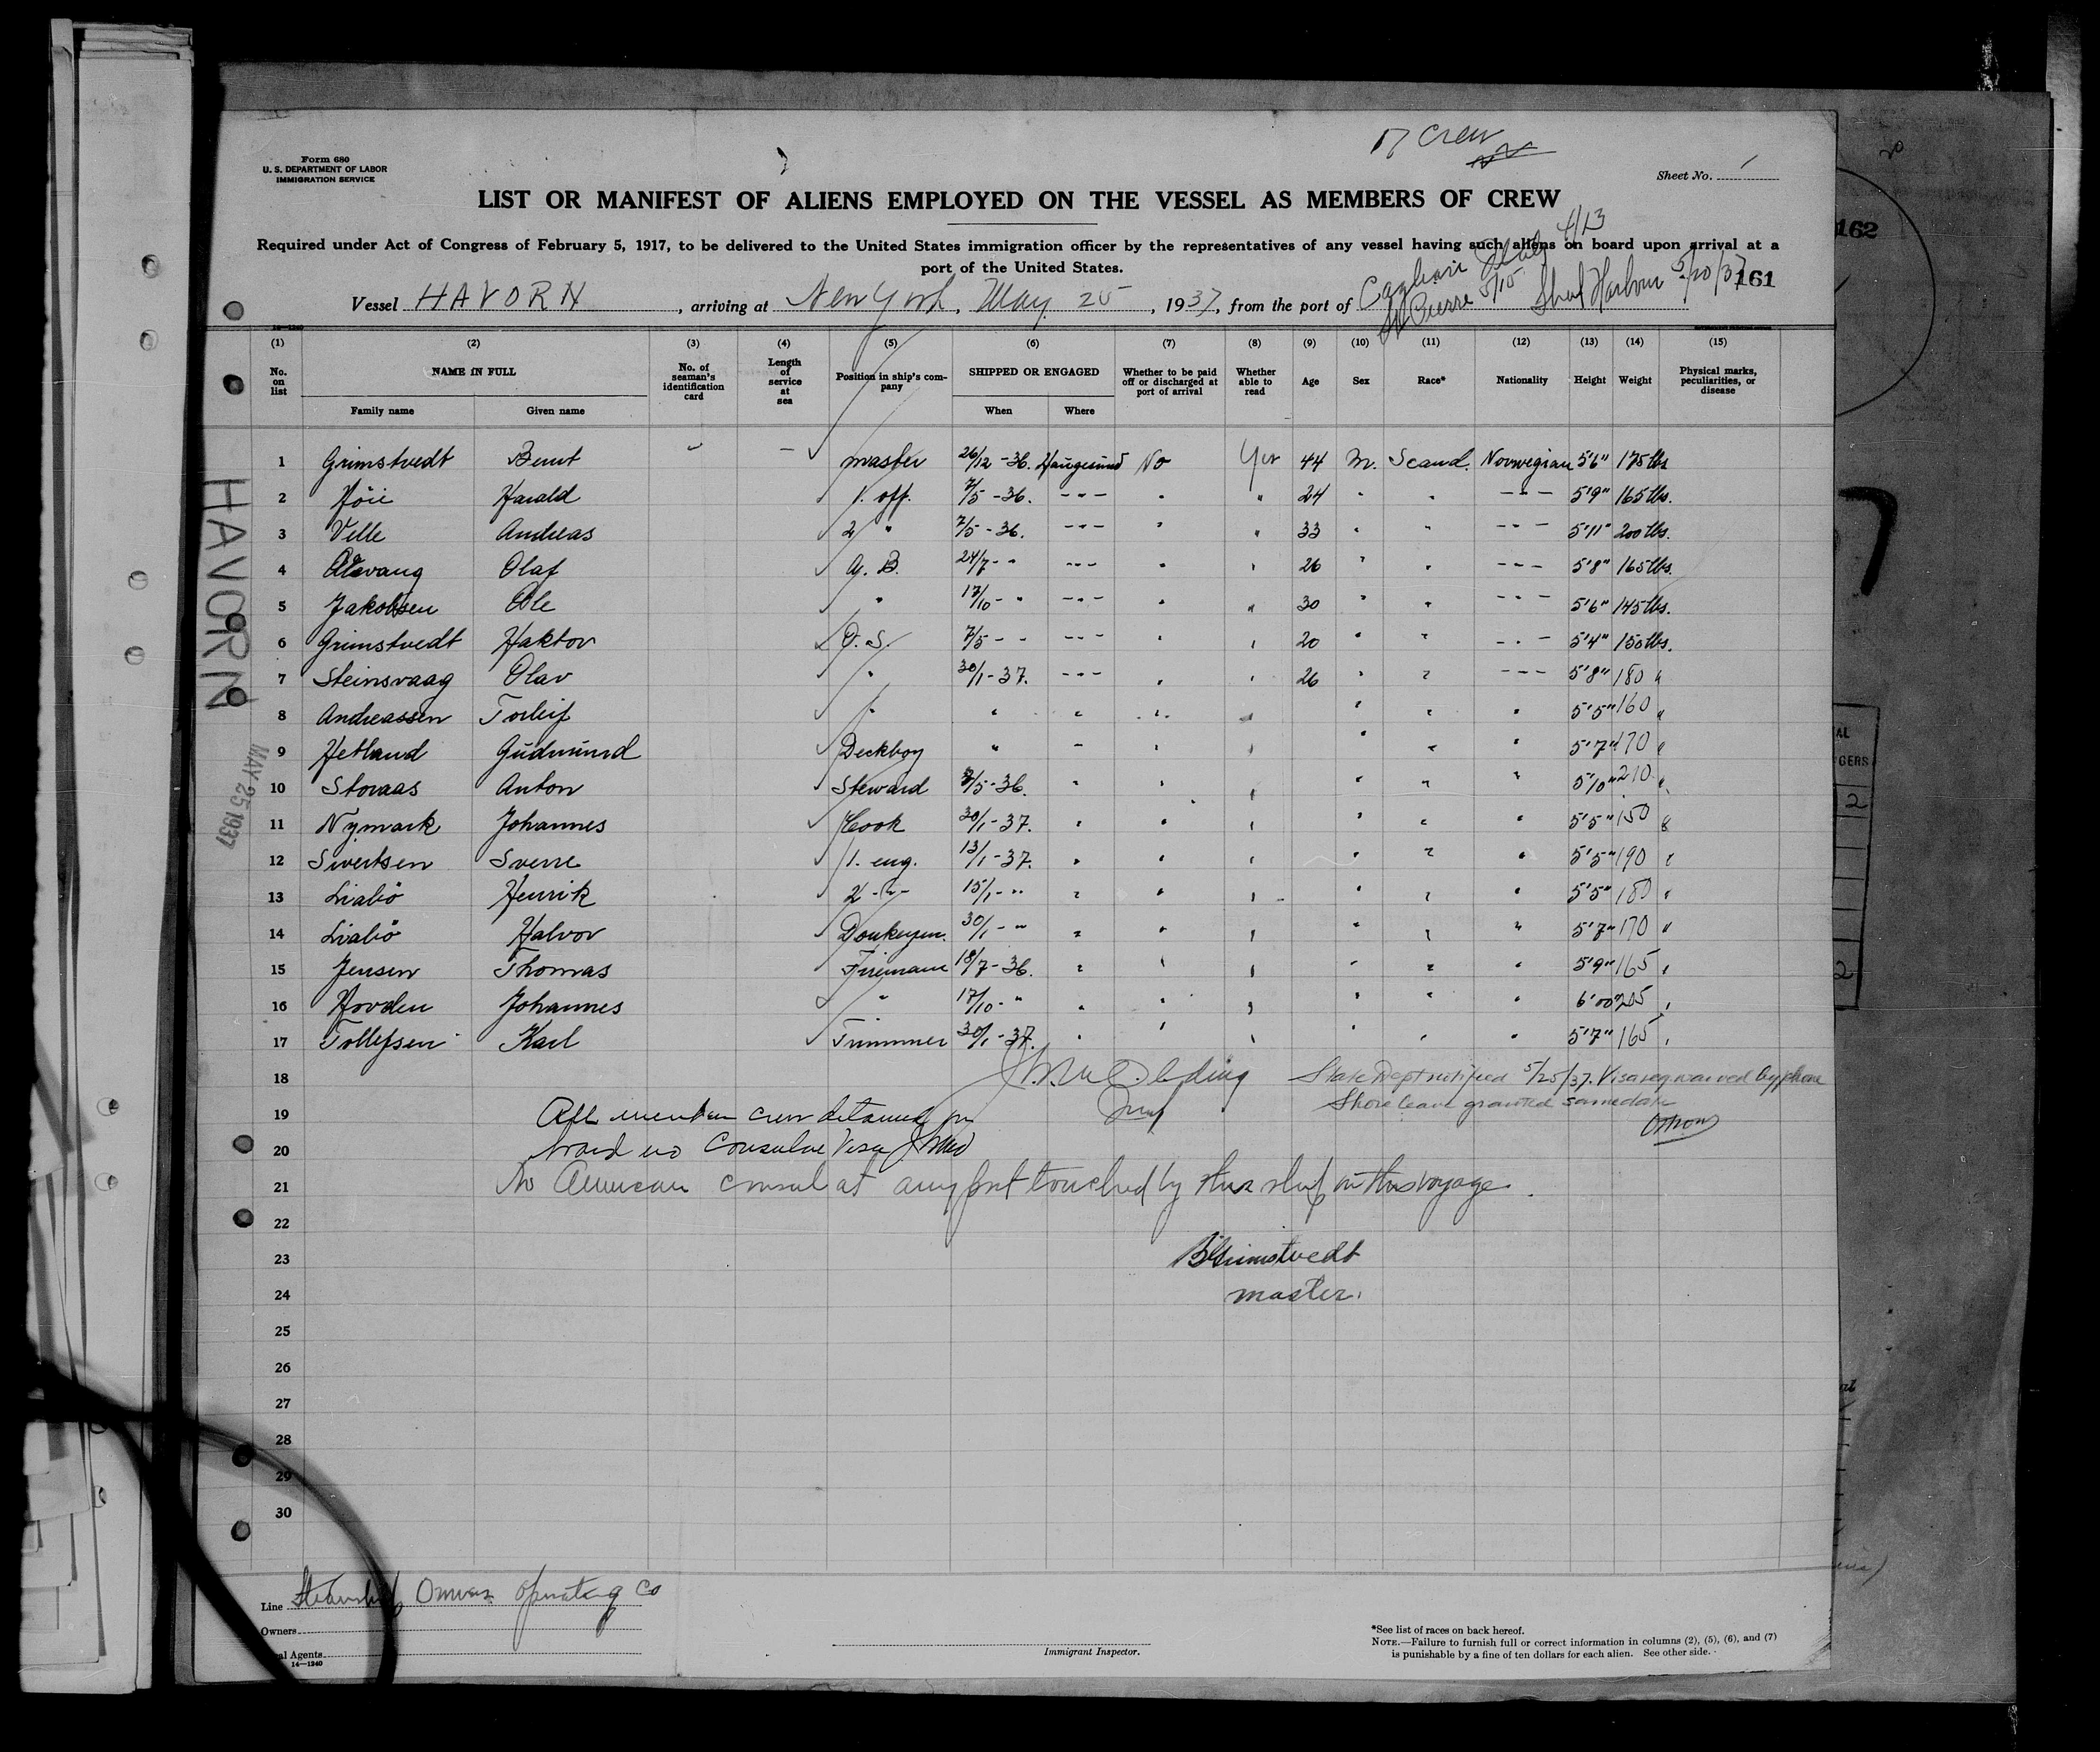 17 Crew
Form 680
U. S. DEPARTMENT OF LABOR
IMMIGRATION SERVICE
Sheet No. 1
LIST OR MANIFEST OF ALIENS EMPLOYED ON THE VESSEL AS MEMBERS OF CREW
Required under Act of Congress of February 5, 1917, to be delivered to the United States immigration officer by the representatives of any vessel having such aliens on board upon arrival at a
port of the United States.
Vessel HAVORN, arriving at New York, May 25, 1937, from the port of Cagliari Italy 4/13 St Pierre 5/15 Shel Harbour 5/20/37
161
162
(1) (2) (3) (4) (5) (6) (7) (8) (9) (10) (11) (12) (13) (14) (15)
No. on list NAME IN FULL No. of seaman's identification card Length of service at sea Position in ship's company SHIPPED OR ENGAGED Whether to be paid off or discharged at port of arrival Whether able to read Age Sex Race* Nationality Height Weight Physical marks, peculiarities, or disease
Family name Given name When Where
1 Grimstvedt Bernt — master 26/12 -36. Haugesund No Yes 44 M. Scand. Norwegian 5'6" 175 lbs
2 Höie Harald 1. off. 7/5 -36. --- " " 24 " " --- 5'9" 165 lbs.
3 Velle Andreas 2 " 7/5 -36. --- " " 33 " " --- 5'11" 200 lbs.
4 Olaf A. B. 24/7 - " --- " " 26 " " --- 5'8" 165 lbs.
5 Jakobsen Ole " 17/10 - " --- " " 30 " " --- 5'6" 145 lbs.
6 Grimstvedt Haktor O. S. 7/5 - - --- " " 20 " " --- 5'4" 150 lbs.
7 Steinsvaag Olav " 30/1 - 37. --- " " 26 " " --- 5'8" 180 "
8 Andreassen Torleif " " " " " " " " 5'5" 160 "
9 Hetland Gudmund Deckboy " " " " " " " 5'7" 170 "
10 Stovaas Anton Steward 7/5 -36. " " " " " " 5'10" 210 "
11 Nymark Johannes Cook 30/1 - 37. " " " " " " 5'5" 150 "
12 Sivertsen Sverre 1. eng. 13/1 - 37. " " " " " " 5'5" 190 "
13 Liabö Henrik 2 - " - 15/1 - " " " " " " " 5'5" 180 "
14 Liabö Halvor Donkeym. 30/1 - " " " " " " " 5'7" 170 "
15 Jensen Thomas Firemann 18/7 - 36. " " " " " " 5'9" 165 "
16 Hovden Johannes " 17/10 - " " " " " " " 6'00" 205 "
17 Tollefsen Karl Trimmer 30/1 - 37. " " " " " " 5'7" 165 "
18 State Dept notified 5/25/37. Visa req. waived by phone
19 Shore leave granted same date
All members crew detained on
20 board no Consular Visa
21 No American consul at any port touched by this ship on this voyage.
22
23 B Grimstvedt
24 master.
25
26
27
28
29
30
HAVORN
MAY 25 1937
Line Steamship Owners Operating Co
Owners
al Agents
14—1240
Immigrant Inspector.
*See list of races on back hereof.
NOTE.—Failure to furnish full or correct information in columns (2), (5), (6), and (7)
is punishable by a fine of ten dollars for each alien. See other side.